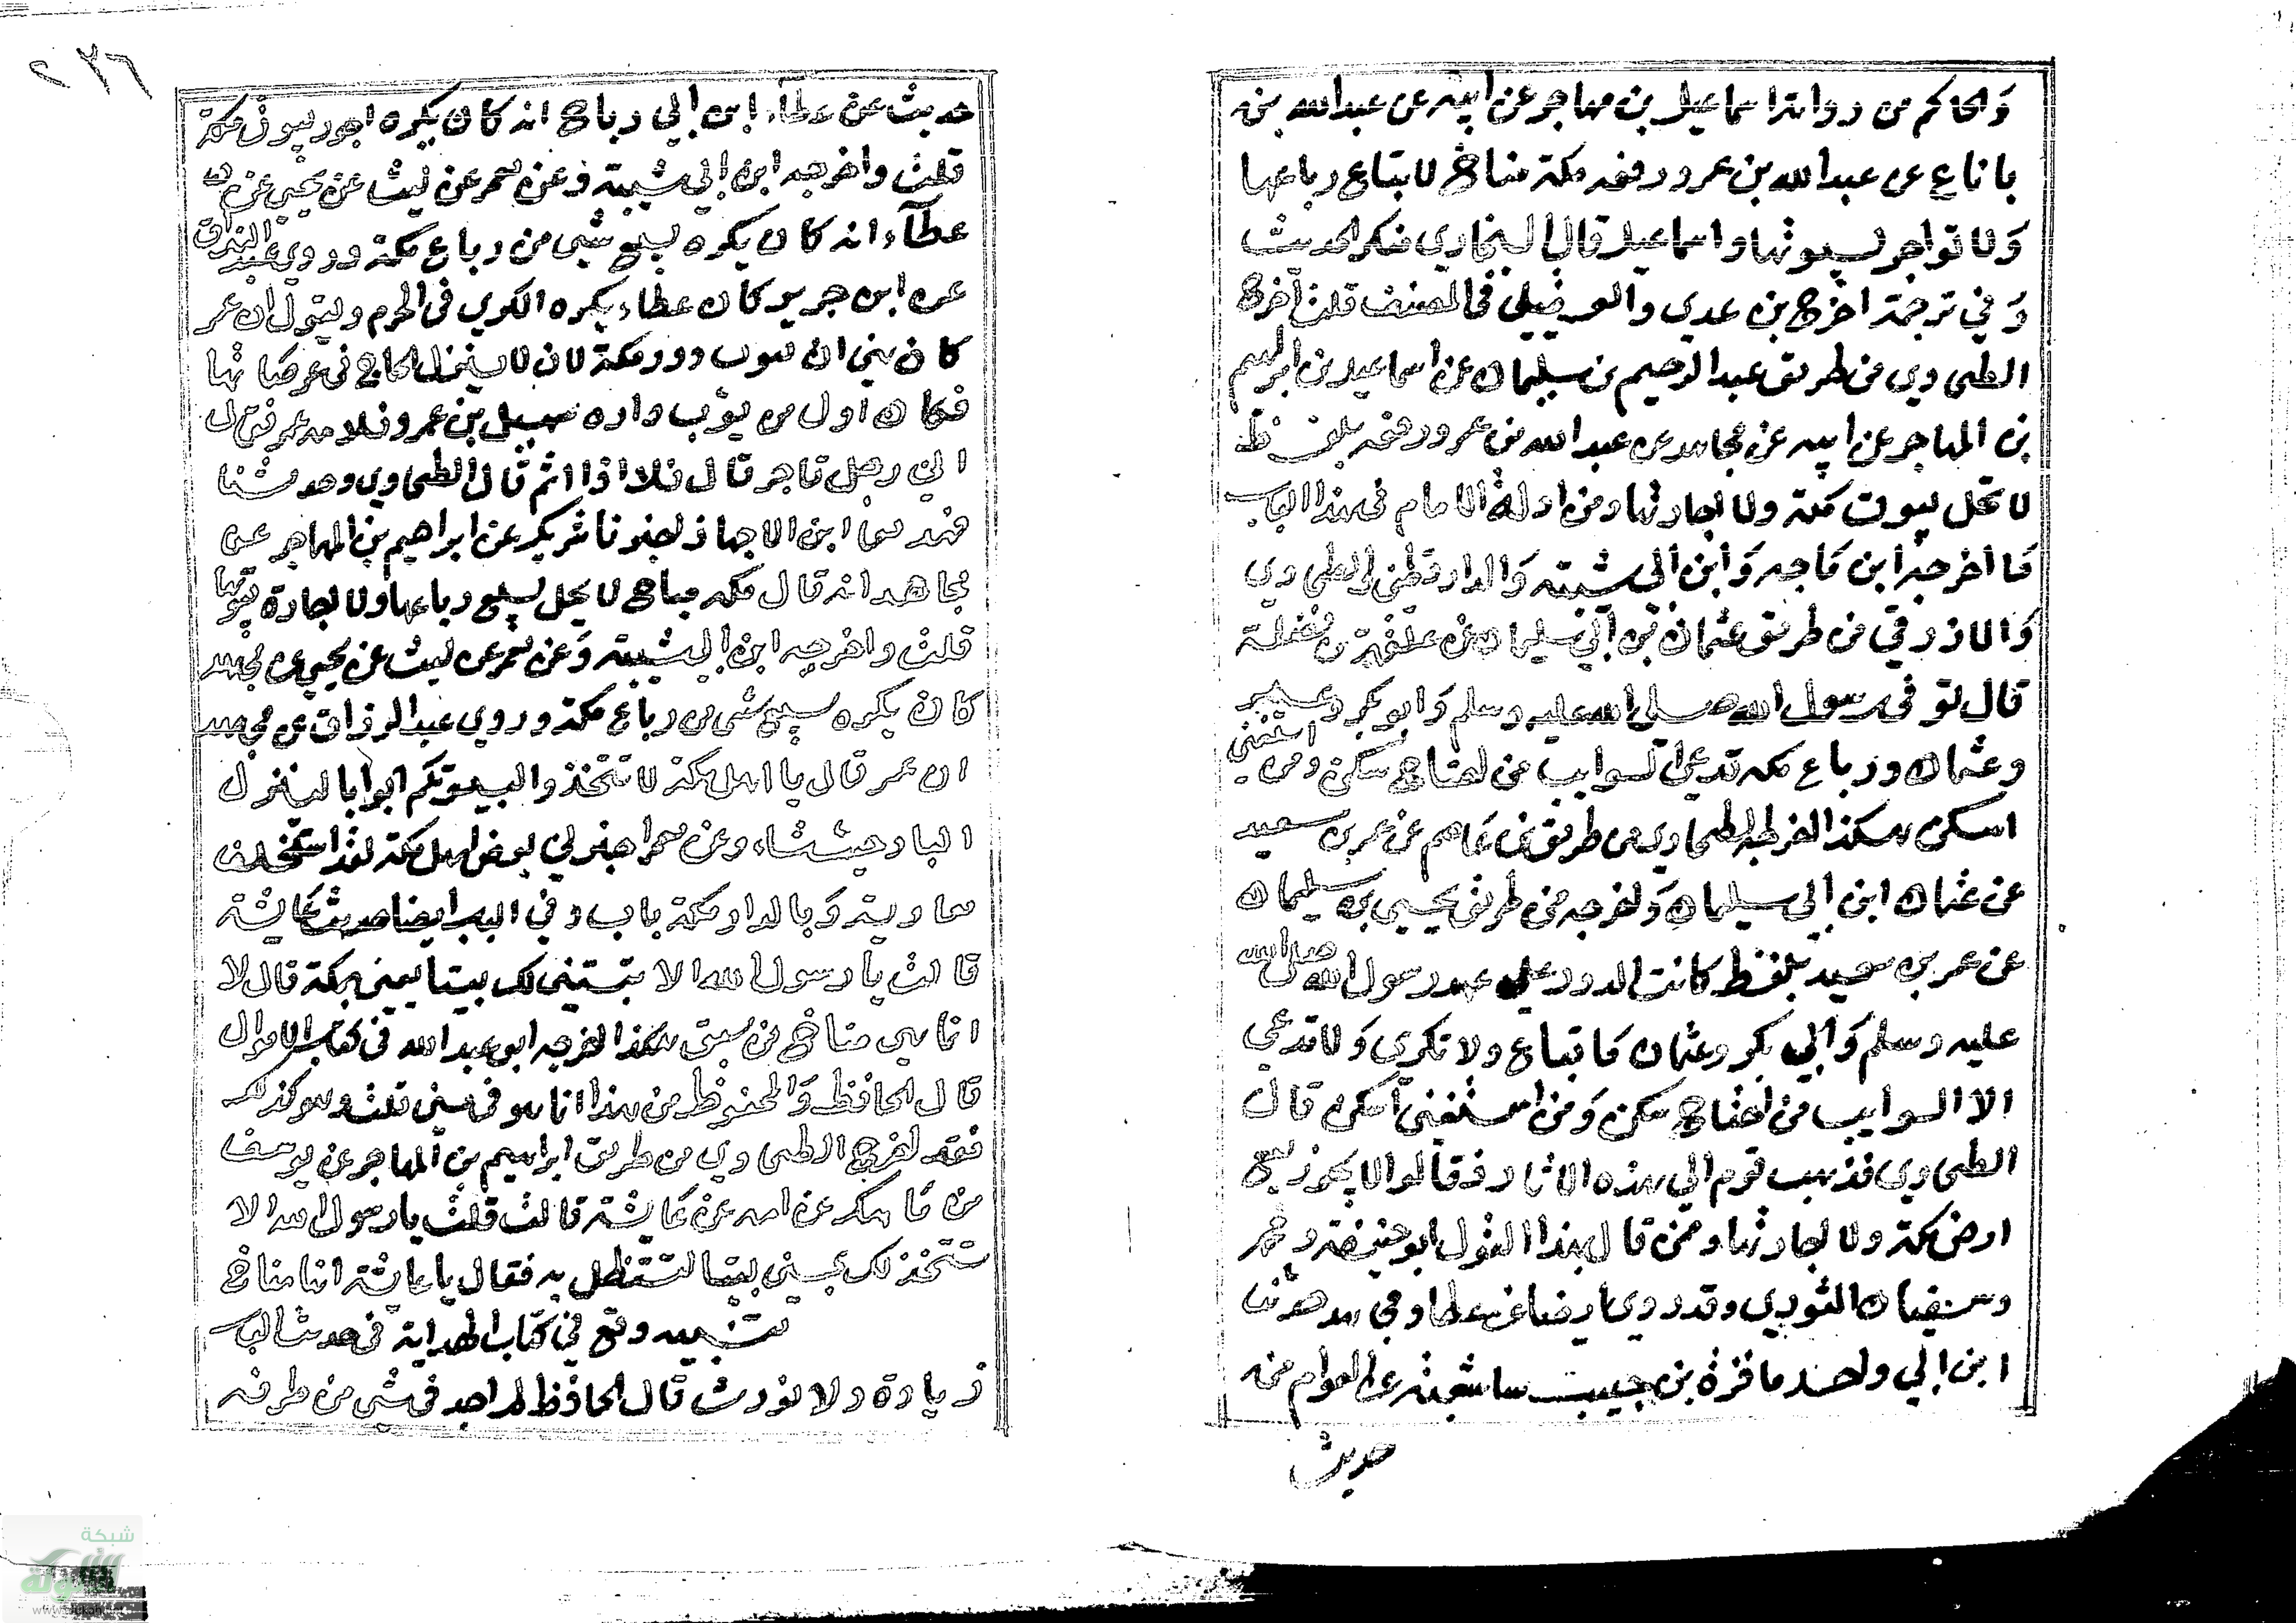 والحاكم من رواية اسماعيل بن مهاجر عن ابيه عن عبدالله بن
باناع عن عبدالله بن عمرو رفعه مكة مناخ لا بتاع رباعها
ولا تواجر بيوتها واسماعيل قال البخاري منكر الحديث
وفي ترجمة اخرج بن عدي والعقيلي في المصنف قلت اخرج
الطحاوي من طريق عبدالرحيم بن سليمان عن اسماعيل بن ابراهيم
بن المهاجر عن ابيه عن مجاهد عن عبدالله بن عمرو رفعه بلفظ
لا تحل بيوت مكة ولا اجارتها ومن ادلة الامام في هذا الباب
ما اخرجه ابن ماجه وابن ابي شيبة والدارقطني والطحاوي
والازرقي من طريق عثمان بن ابي سليمان عن علقمة بن نضلة
قال توفي رسول الله صلى الله عليه وسلم وابوبكر وعمر
وعثمان ورباع مكه تدعى السوايب من احتاج سكن ومن استغنى
اسكن هكذا لفظ الطحاوي من طريق ابي عاصم عن عمر بن سعيد
عن عثمان ابن ابي سليمان واخرجه من طريق يحيى بن سليمان
عن عمر بن سعيد بلفظ كانت الدور على عهد رسول الله صلى الله
عليه وسلم وابي بكر وعثمان ما تباع ولا تكرى ولا تدعى
الا السوايب من احتاج سكن ومن استغنى اسكن قال
الطحاوي فذهب قوم الي هذه الاثار فقالوا لا يجوز بيع
ارض مكة ولا اجارتها وممن قال بهذا القول ابوحنيفة ومحمد
وسفيان الثوري وقد روى ايضا عن عطا ومجاهد حدثنا
ابن ابي
حديث
٢٣٦
حديث عن عطاء ابن ابي رباح انه كان يكره اجور بيوت مكة
قلت واخرجه ابن ابي شيبة وعن معمر عن ليث عن يحيى عن
عطآء انه كان يكره بيع شي من رباع مكة وروى عبدالرزاق
عن ابن جريج كان عطاء يكره الكري في الحرم ويقول ان عمر
كان نهى ان تبوب دور مكة لان لا ينزل الحاج في عرصاتها
فكان اول من بوب داره سهيل بن عمرو فلامه عمر فقال
اني رجل تاجر قال فلا اذا اثم قال الطحاوي وحدثنا
فهد ابن الاصبهاني اخبرنا شريك عن ابراهيم بن المهاجر عن
مجاهد انه قال مكه مباح لا يحل بيع رباعها ولا اجارة بيوتها
قلت واخرجه ابن ابي شيبة وعن معمر عن ليث عن يحيى عن مجاهد
كان يكره بيع شي من رباع مكة وروى عبدالرزاق عن مجاهد
ان عمر قال يا اهل مكة لا تتخذوا لبيوتكم ابوابا لينزل
الباد حيث شاء وعن معمر اخبرني بعض اهل مكة لقد استخلف
معاوية وبالدار مكة باب وفي الباب ايضا حديث عائشة
قالت يا رسول الله الا نبتني لك بيتا يعني بمكة قال لا
انما هي مناخ من سبق هكذا اخرجه ابوعبدالله في كتاب الاموال
قال الحافظ والمحفوظ من هذا انما هو في منى قلت وهو كذلك
فقد اخرج الطحاوي من طريق ابراهيم بن المهاجر عن يوسف
بن ماهك عن امه عن عايشة قالت قلت يا رسول الله الا
تتخذ لك بمنى بيتا تستظل به فقال يا عايشة انها مناخ
تنبيه وقع في كتاب الهداية في حديث الباب
زيادة ولا تورث قال الحافظ لم اجد في شي من طرقه